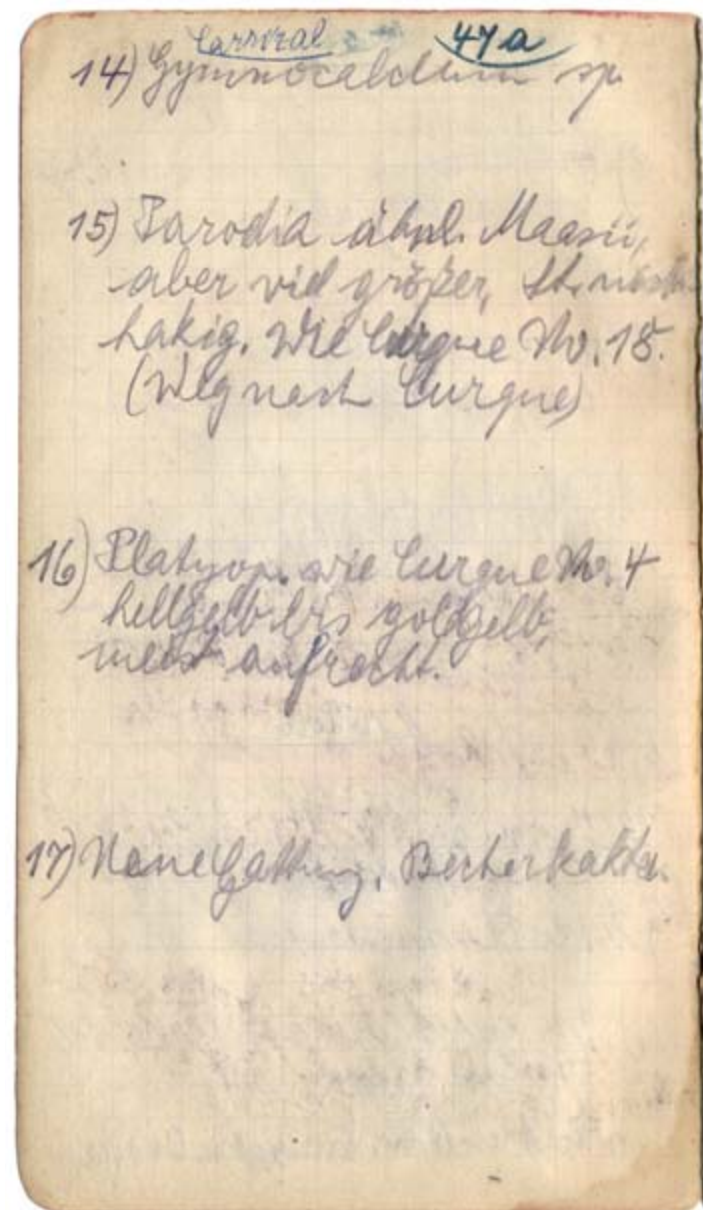 Carrizal 47a
14) Gymnocalcium sp.
15) Parodia ähnl. Maasii,
aber viel größer, St. nicht
hakig. Wie Curque No. 18.
(Weg nach Curque)
16) Platyop. wie Curque No. 4
hellgelb bis goldgelb,
meist aufrecht.
17) Neue Gattung, Becherkaktus.